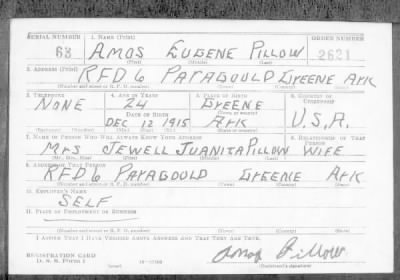 SERIAL NUMBER 1. NAME (Print) ORDER NUMBER
63 AMOS EUGENE PILLOW 2621
(First) (Middle) (Last)
2. ADDRESS (Print)
RFD 6 PARAGOULD GREENE ARK
(Number and street or R. F. D. number) (Town) (County) (State)
3. TELEPHONE 4. AGE IN YEARS 5. PLACE OF BIRTH 6. COUNTRY OF CITIZENSHIP
NONE 24 GREENE
DATE OF BIRTH (Town or county)
DEC 12 1915 ARK U.S.A.
(Exchange) (Number) (Mo.) (Day) (Yr.) (State or country)
7. NAME OF PERSON WHO WILL ALWAYS KNOW YOUR ADDRESS 8. RELATIONSHIP OF THAT PERSON
MRS JEWELL JUANITA PILLOW WIFE
(Mr., Mrs., Miss) (First) (Middle) (Last)
9. ADDRESS OF THAT PERSON
RFD 6 PARAGOULD GREENE ARK
(Number and street or R. F. D. number) (Town) (County) (State)
10. EMPLOYER'S NAME
SELF
11. PLACE OF EMPLOYMENT OR BUSINESS
(Number and street or R. F. D. number) (Town) (County) (State)
I AFFIRM THAT I HAVE VERIFIED ABOVE ANSWERS AND THAT THEY ARE TRUE.
REGISTRATION CARD
D. S. S. FORM 1 Amos Pillow
(over) (Registrant's signature)